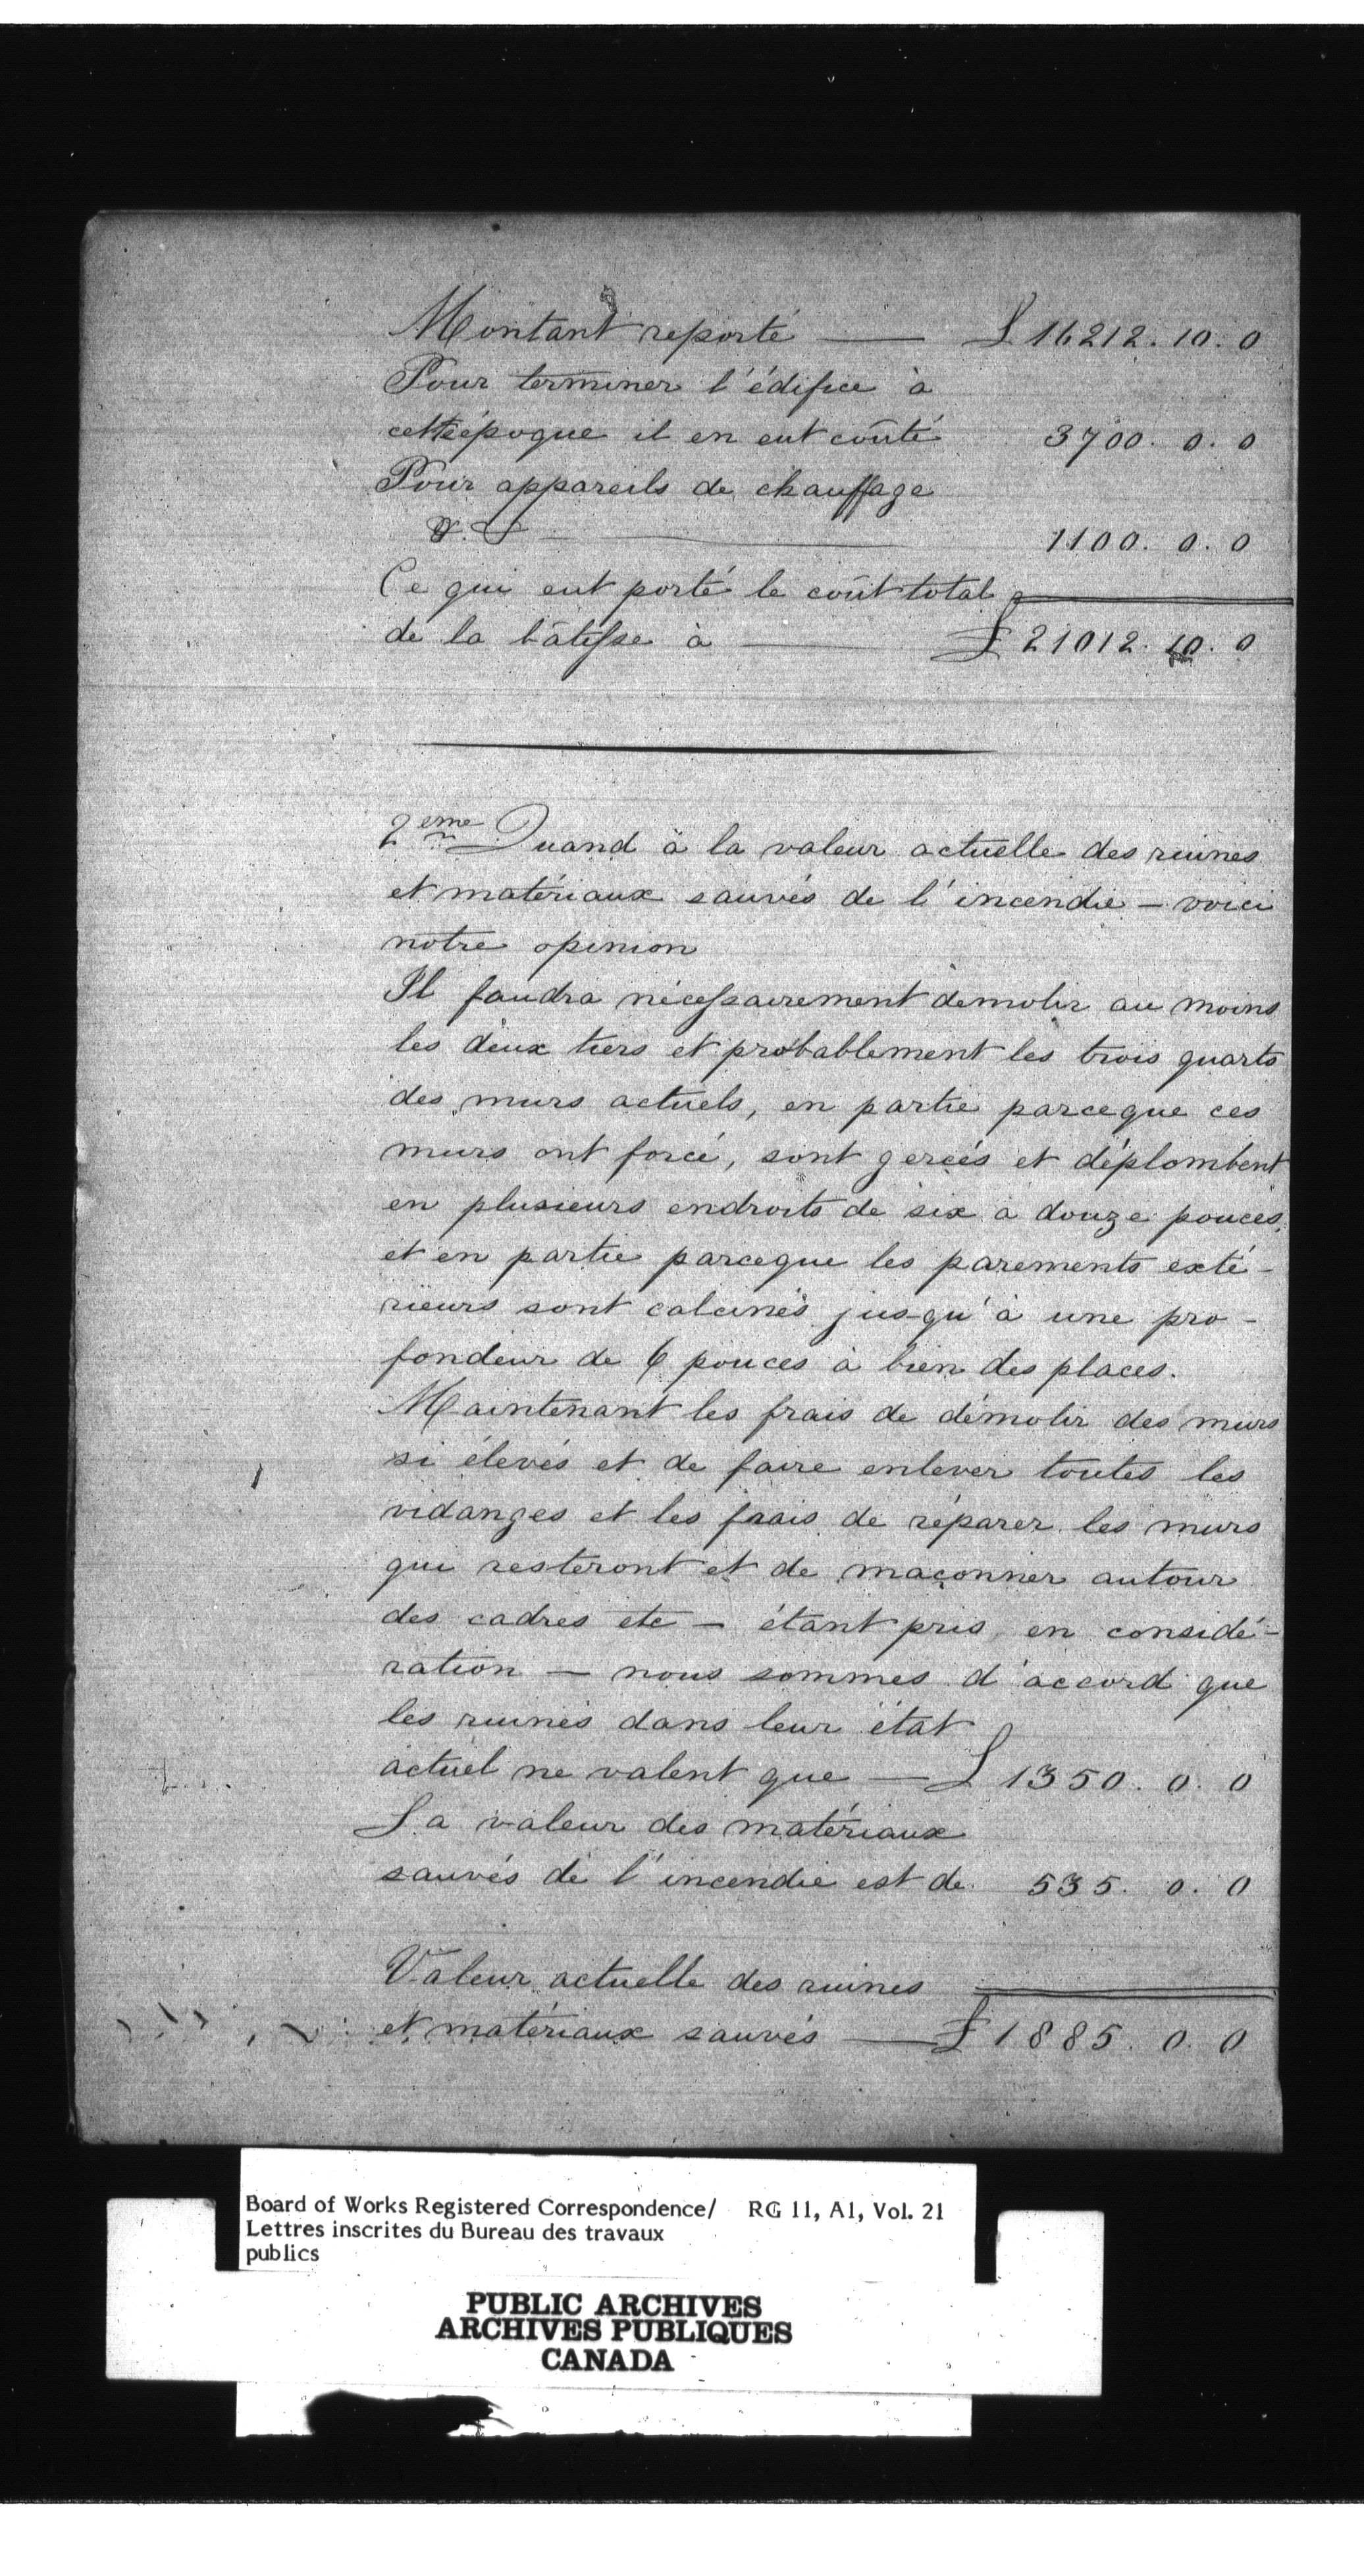 Montant reporté — £ 16212. 10. 0
Pour terminer l'édifice à
cette époque il en eut coûté 3700. 0. 0
Pour appareils de chauffage
1100. 0. 0
Ce qui eut porté le coût total
de la bâtisse à — £ 21012. 10. 0
2eme Quand à la valeur actuelle des ruines
et matériaux sauvés de l'incendie — voici
notre opinion
Il faudra nécessairement démolir au moins
les deux tiers et probablement les trois quarts
des murs actuels, en partie parceque ces
murs ont forcé, sont gercés et déplombent
en plusieurs endroits de six à douze pouces,
et en partie parceque les parements exté-
rieurs sont calcinés jus-qu'à une pro-
fondeur de 6 pouces à bien des places.
Maintenant les frais de démolir des murs
si élevés et de faire enlever toutes les
vidanges et les frais de réparer les murs
qui resteront et de maçonner autour
des cadres etc — étant pris en considé-
ration — nous sommes d'accord que
les ruines dans leur état
actuel ne valent que — £ 1350. 0. 0
La valeur des matériaux
sauvés de l'incendie est de 535. 0. 0
Valeur actuelle des ruines
et matériaux sauvés — £ 1885. 0. 0
Board of Works Registered Correspondence/ RG 11, A1, Vol. 21
Lettres inscrites du Bureau des travaux
publics
PUBLIC ARCHIVES
ARCHIVES PUBLIQUES
CANADA